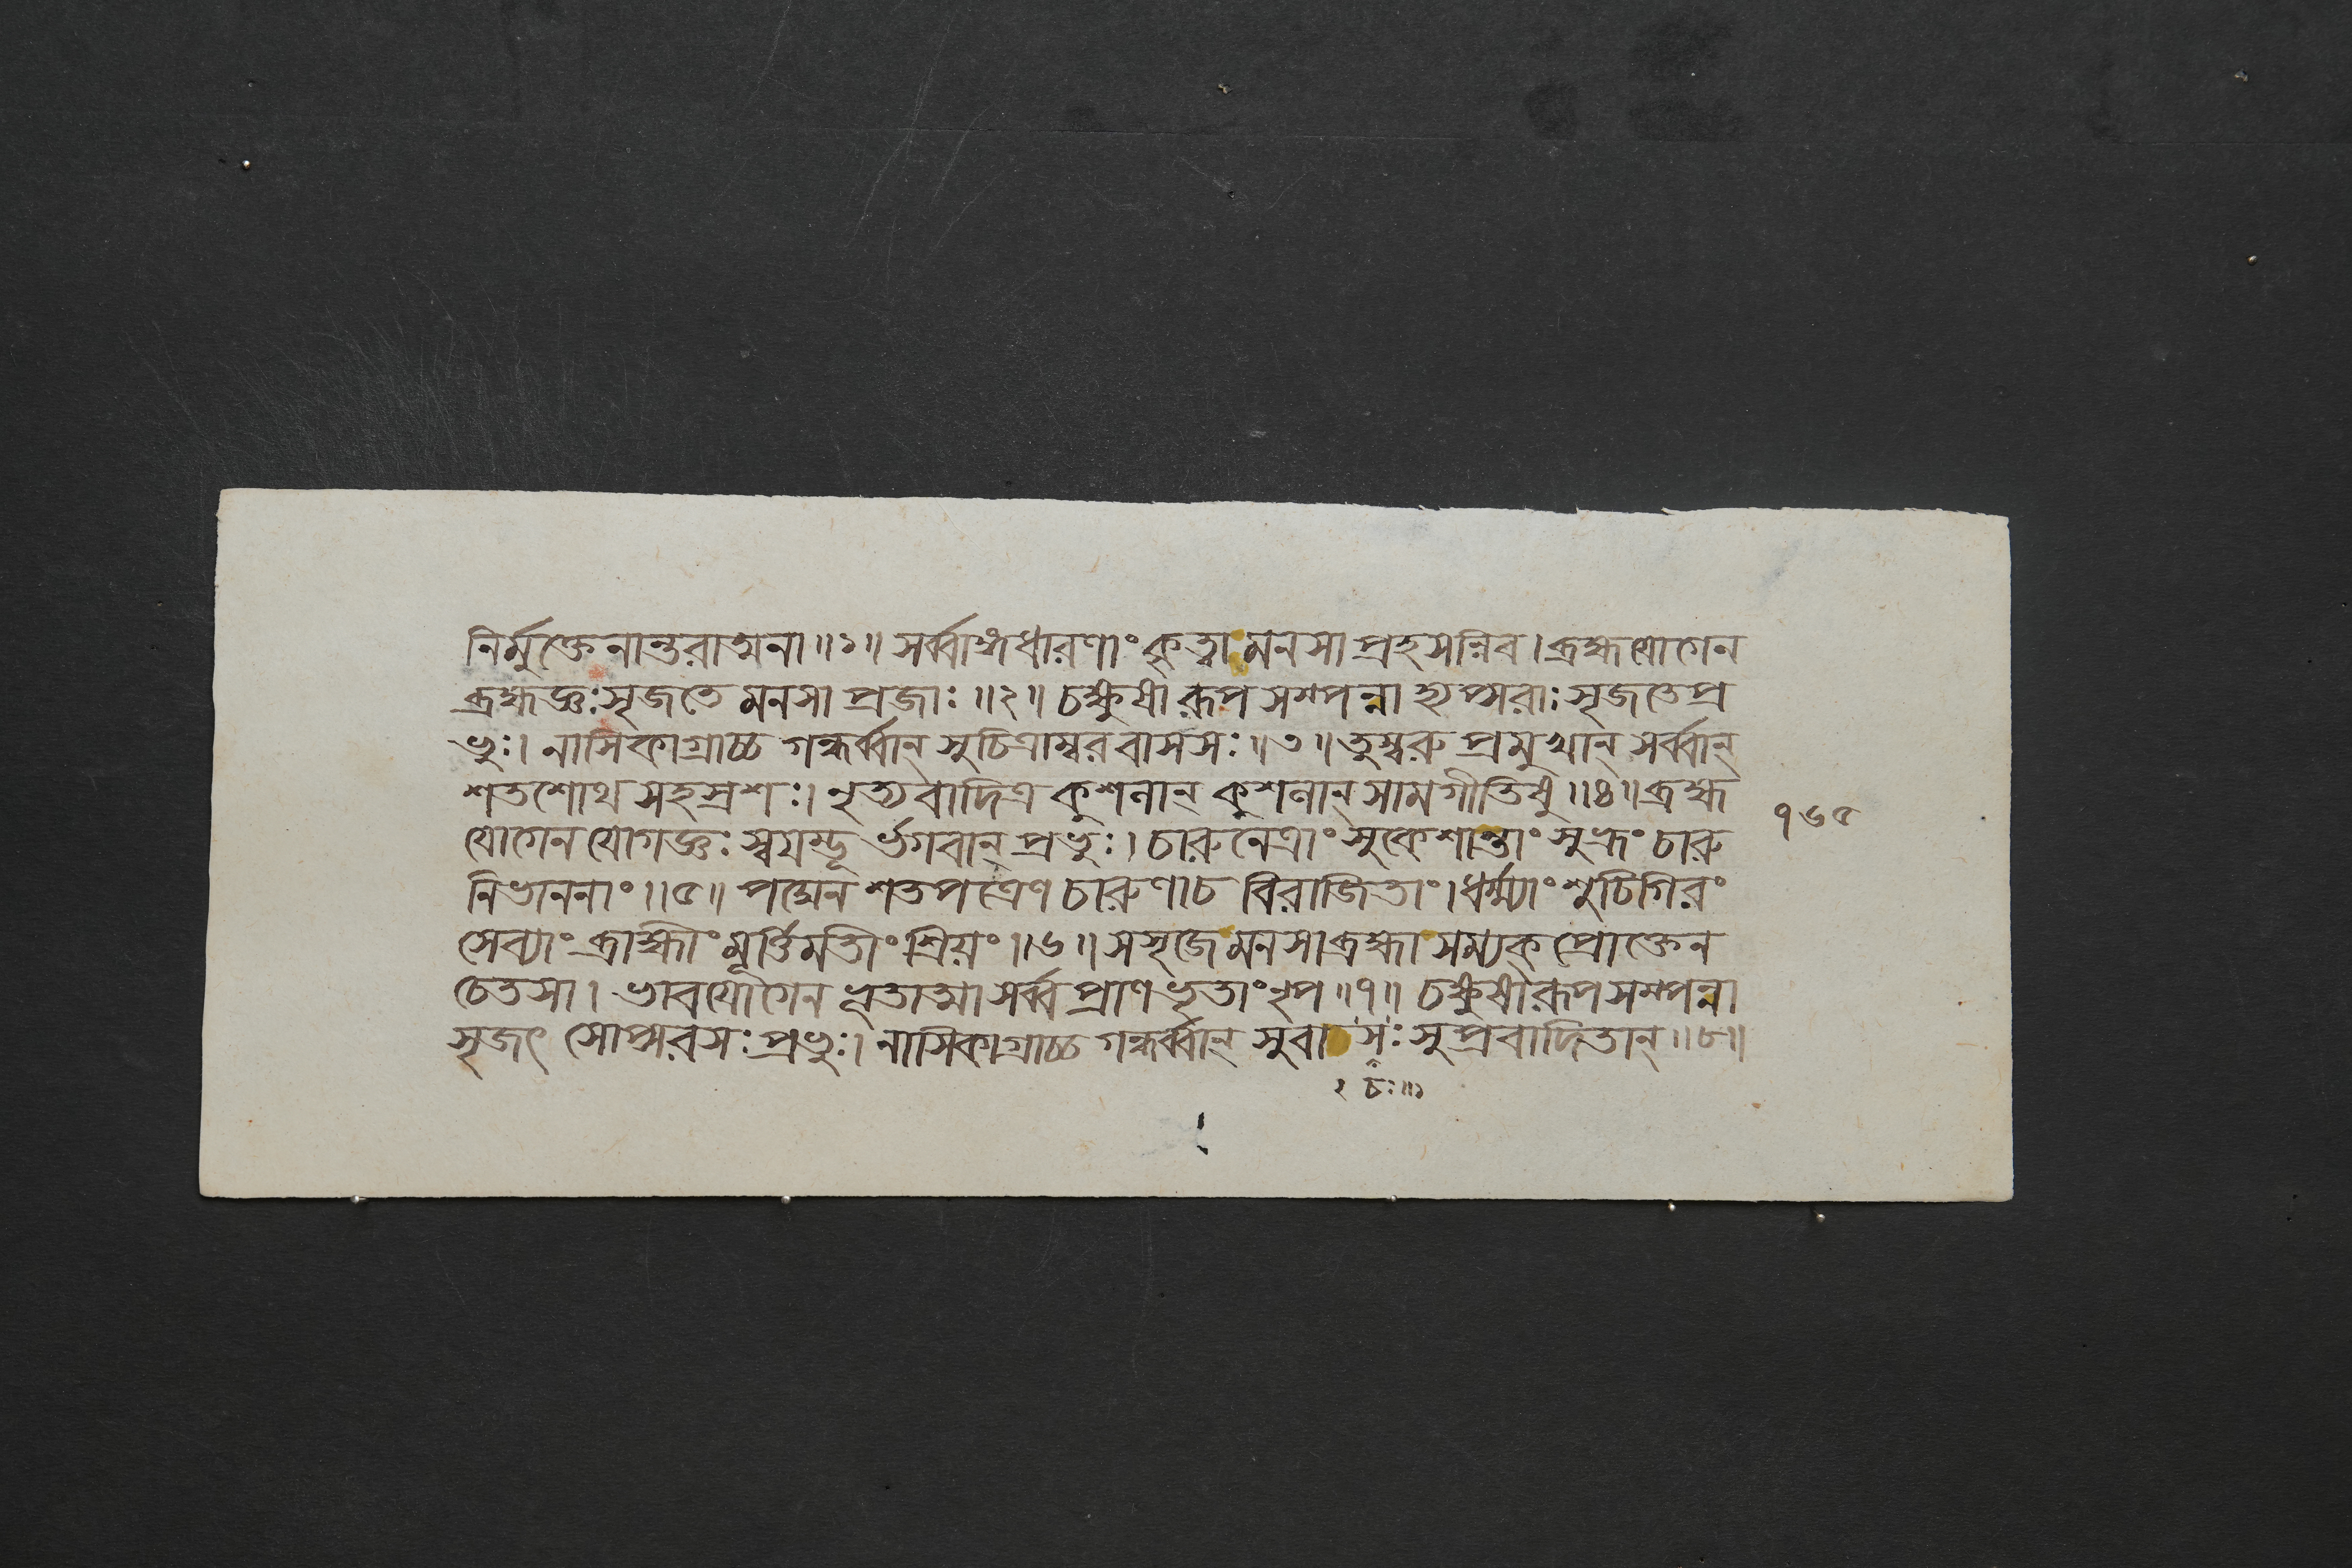 নির্মুক্তেনান্তরাত্মনা॥১॥ সর্ব্বাঙ্গধারণাং কৃত্বা মনসা প্রহসন্নিব। ব্রহ্মযোগেন
ব্রহ্মজ্ঞঃ সৃজতে মনসা প্রজাঃ॥২॥ চক্ষুষী রূপসম্পন্না হ্যপ্সরাঃ সৃজতে প্র
ভুঃ। নাসিকাগ্রাচ্চ গন্ধর্ব্বান্ সুচিত্রাম্বরবাসসঃ॥৩॥ তুম্বরু প্রমুখান্ সর্ব্বান্
শতশোথ সহস্রশঃ। নৃত্যবাদিত্র কুশলান্ কুশলান্ সামগীতিষু॥৪॥ ব্রহ্ম
যোগেন যোগজ্ঞঃ স্বয়ম্ভূর্ভগবান্ প্রভুঃ। চারুনেত্রাং সুকেশান্তাং সুভ্রূং চারু
নিভাননাং॥৫॥ পদ্মেন শতপত্রেণ চারুণা চ বিরাজিতাং। ধর্ম্ম্যাং শুচিগিরং
সেব্যাং ব্রাহ্মীং মূর্ত্তিমতীং শ্রিয়ং॥৬॥ সসৃজে মনসা ব্রহ্মা সম্যক্ প্রোক্তেন
চেতসা। ভাবযোগেন ভূতাত্মা সর্ব্বপ্রাণভৃতাং নৃপ॥৭॥ চক্ষুষী রূপসম্পন্না
সৃজৎ সোপ্সরসঃ প্রভুঃ। নাসিকাগ্রাচ্চ গন্ধর্ব্বান্ সুবাসঃ সুপ্রবাদিতান্॥৮॥
১৬৫